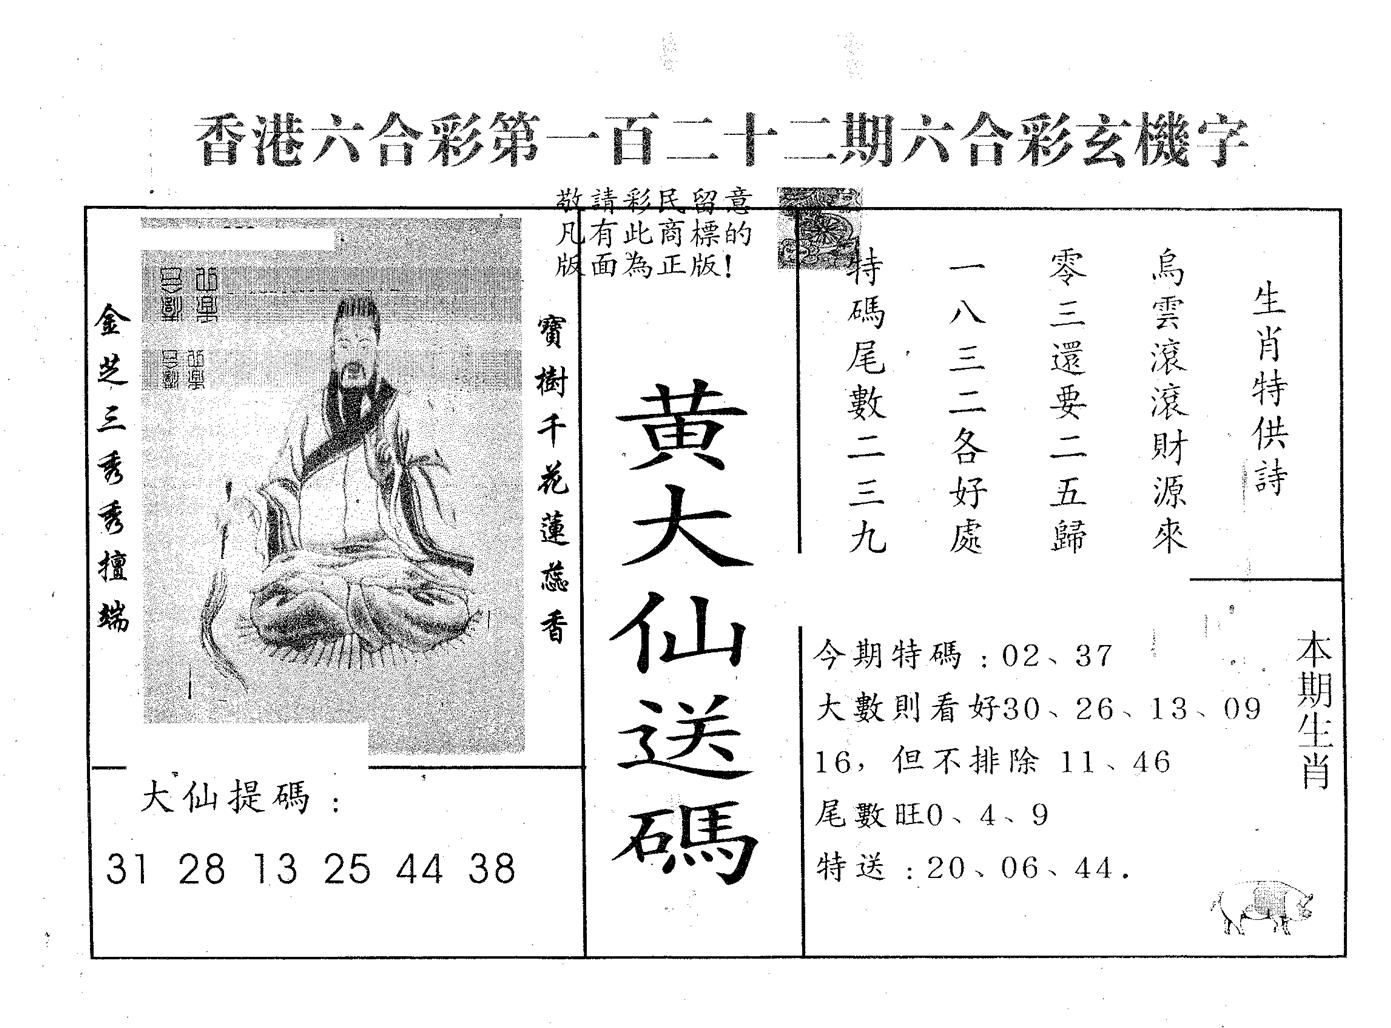 香港六合彩第一百二十二期六合彩玄機字
敬請彩民留意
凡有此商標的
版面為正版!
寶樹千花蓮蕊香
金芝三秀秀擅端
大仙提碼:
31 28 13 25 44 38
黃大仙送碼
生肖特供詩
烏雲滾滾財源來
零三還要二五歸
一八三二各好處
特碼尾數二三九
本期生肖
今期特碼:02、37
大數則看好30、26、13、09
16,但不排除 11、46
尾數旺0、4、9
特送:20、06、44.